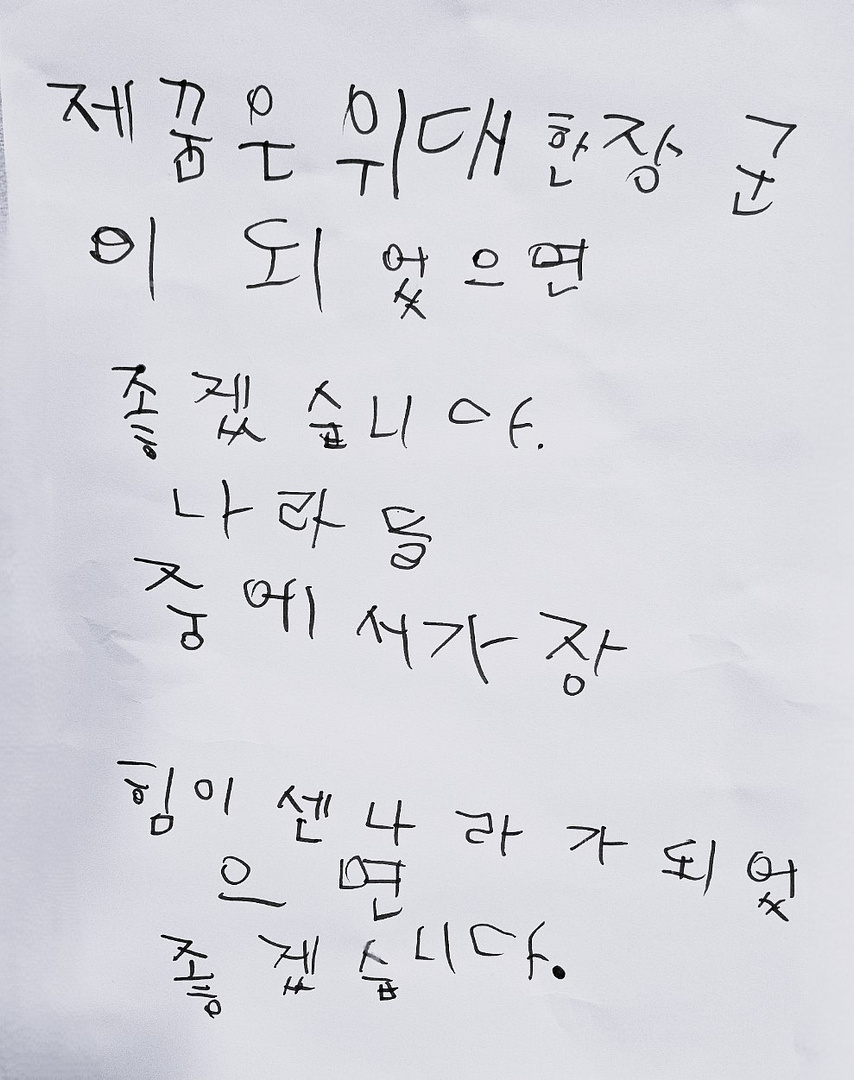 제 꿈은 위대한 장군
이 되었으면
좋겠습니다.
나라들
중에서 가장
힘이 센 나라가 되었
으면
좋겠습니다.